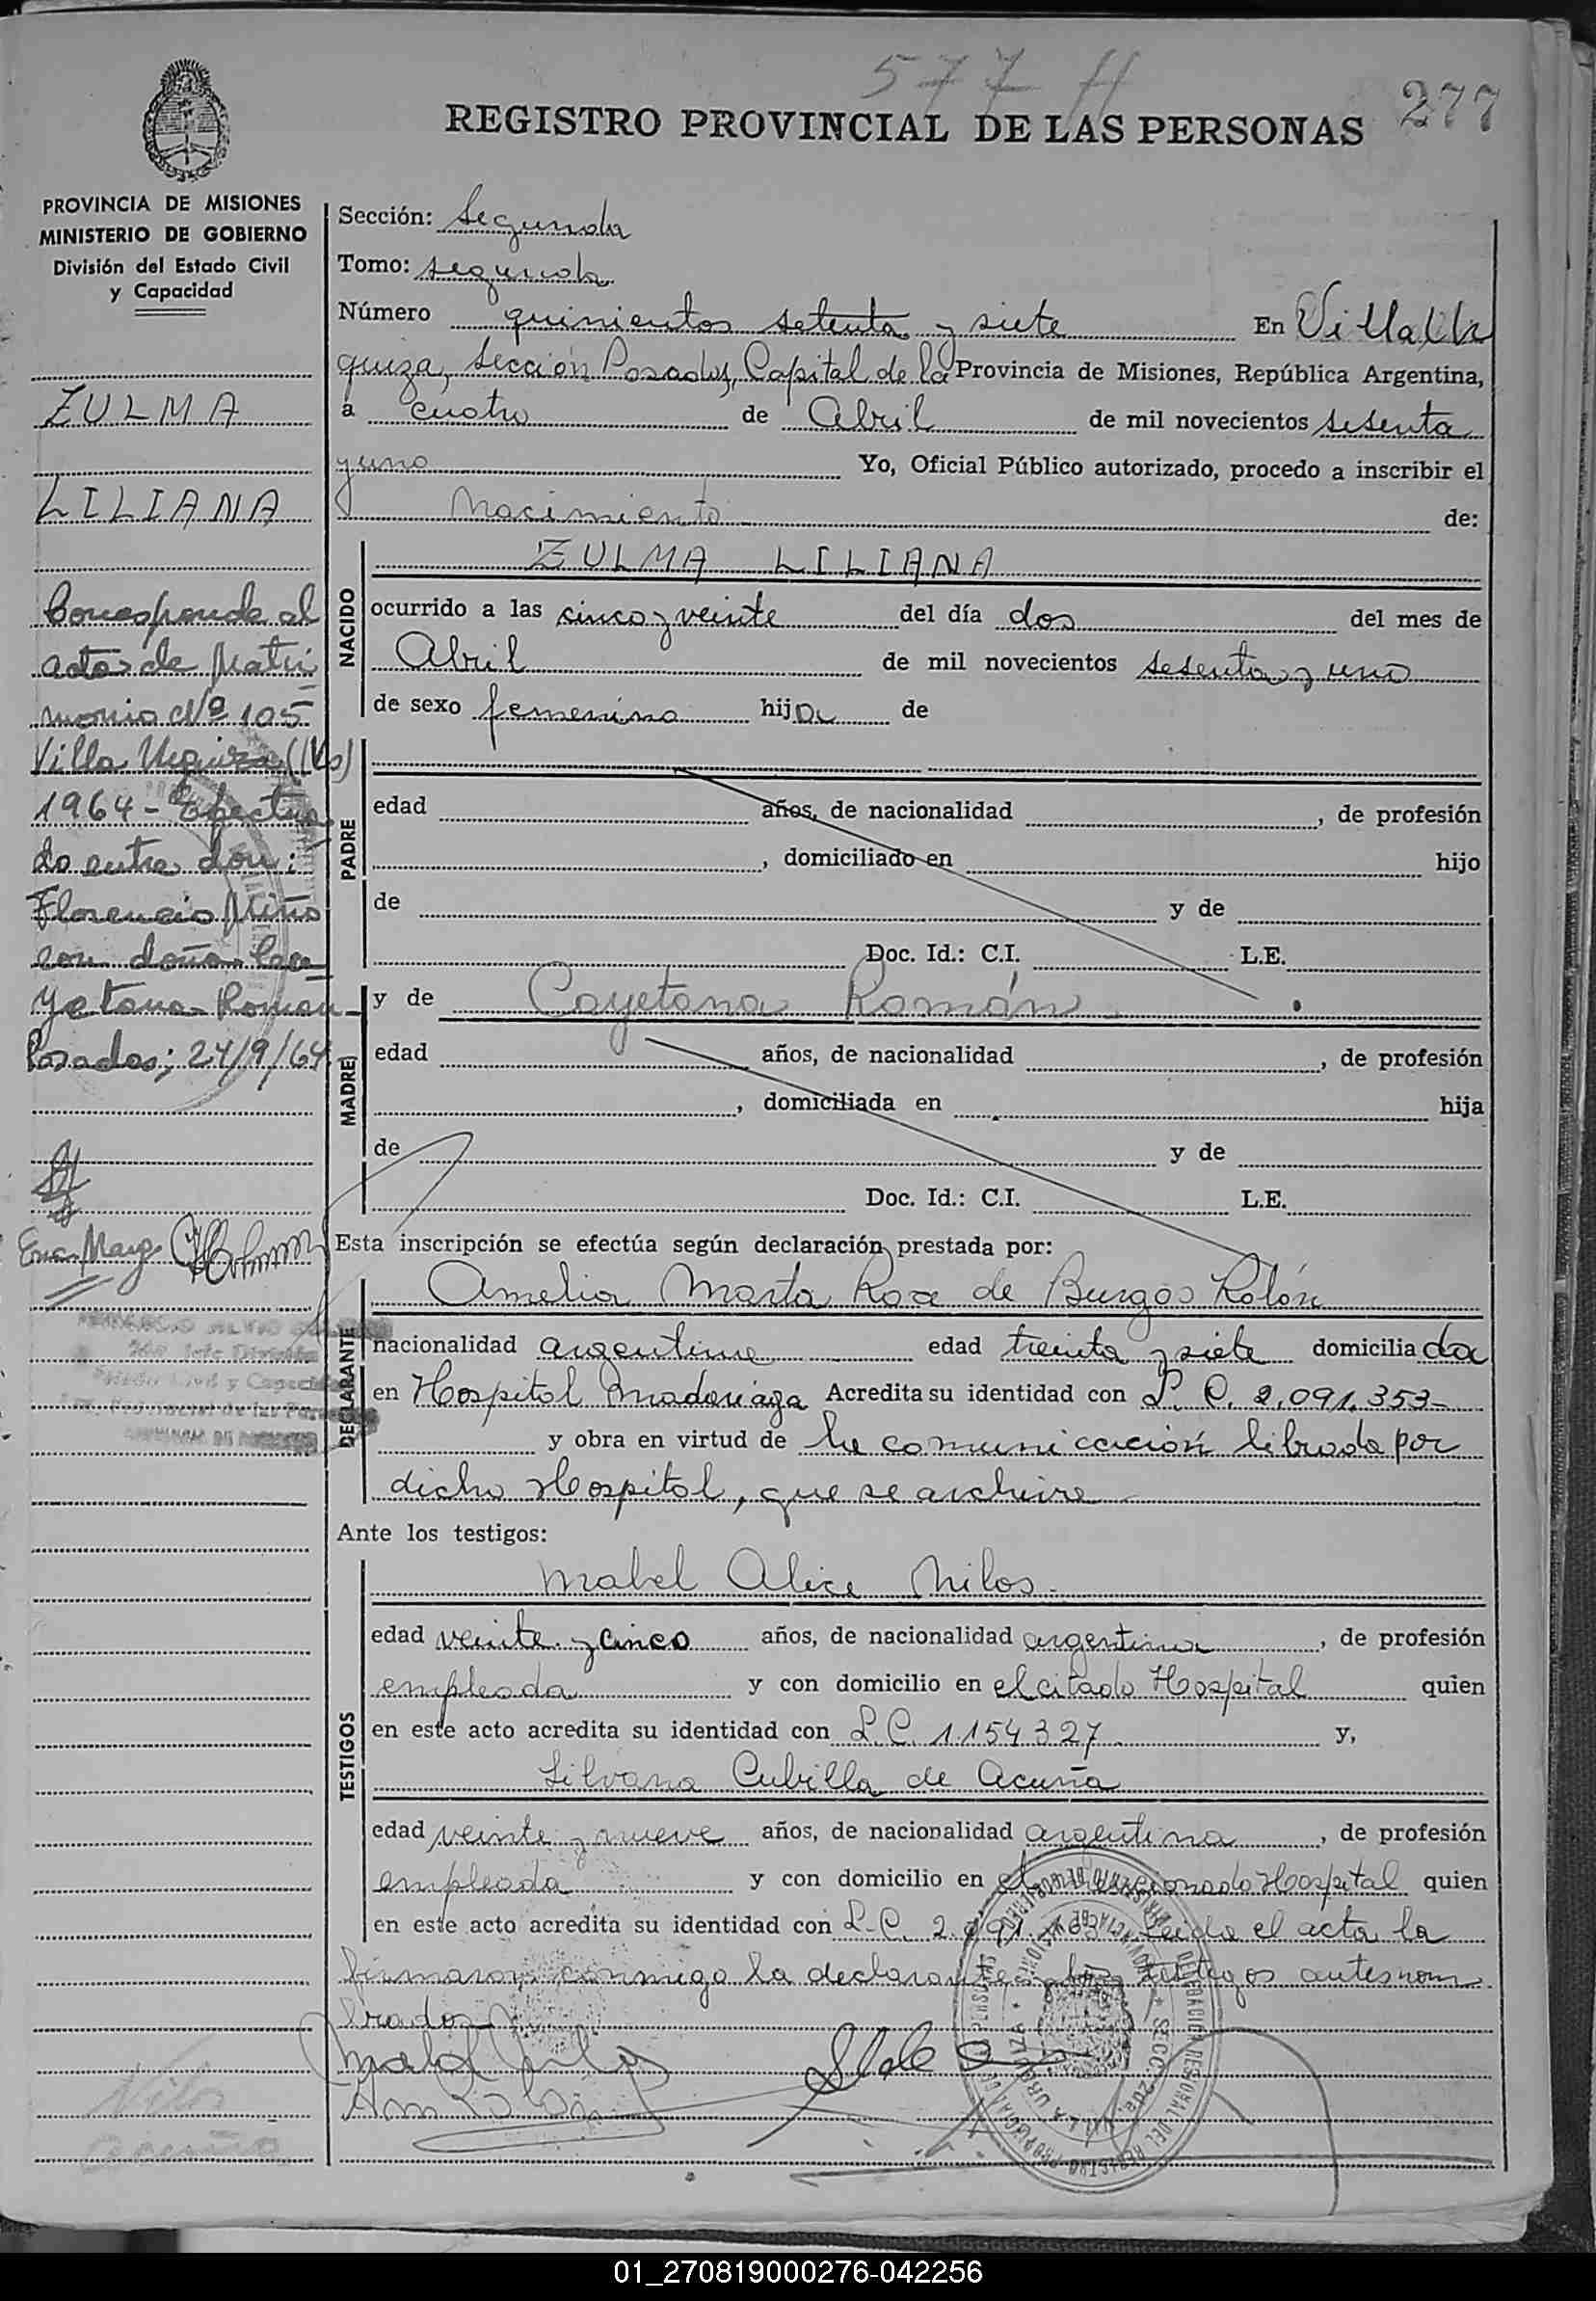 577
277
REGISTRO PROVINCIAL DE LAS PERSONAS
PROVINCIA DE MISIONES
MINISTERIO DE GOBIERNO
División del Estado Civil
y Capacidad
ZULMA
LILIANA
Corresponde al
acta de Matri
monio Nº 105
Villa Urquiza
1964 - Efectua
do entre don:
Florencio Miño
con doña Ca
yetana Román
Posadas; 24/9/64
Sección: Segunda
Tomo: segundo
Número quinientos setenta y siete En Villa Ur
quiza, Sección Posadas, Capital de la Provincia de Misiones, República Argentina,
a cuatro de Abril de mil novecientos sesenta
y uno Yo, Oficial Público autorizado, procedo a inscribir el
Nacimiento de:
NACIDO
ZULMA LILIANA
ocurrido a las cinco y veinte del día dos del mes de
Abril de mil novecientos sesenta y uno
de sexo femenino hija de
PADRE
edad años, de nacionalidad , de profesión
, domiciliado en hijo
de y de
Doc. Id.: C.I. L.E.
MADRE
y de Cayetana Román
edad años, de nacionalidad , de profesión
, domiciliada en hija
de y de
Doc. Id.: C.I. L.E.
Esta inscripción se efectúa según declaración prestada por:
DECLARANTE
Amelia Marta Roa de Burgos Rolón
nacionalidad argentina edad treinta y siete domiciliada
en Hospital Madariaga Acredita su identidad con L. C. 2.091.353
y obra en virtud de la comunicación librada por
dicho Hospital, que se archiva
Ante los testigos:
TESTIGOS
Mabel Alice Nilos
edad veinte y cinco años, de nacionalidad argentina, de profesión
empleada y con domicilio en el citado Hospital quien
en este acto acredita su identidad con L.C. 1.154.327 y,
Silvana Cubilla de Acuña
edad veinte y nueve años, de nacionalidad argentina, de profesión
empleada y con domicilio en el mencionado Hospital quien
en este acto acredita su identidad con L.C. Leida el acta la
firmaron conmigo la declarante y los testigos antesnom
brados
01_270819000276-042256